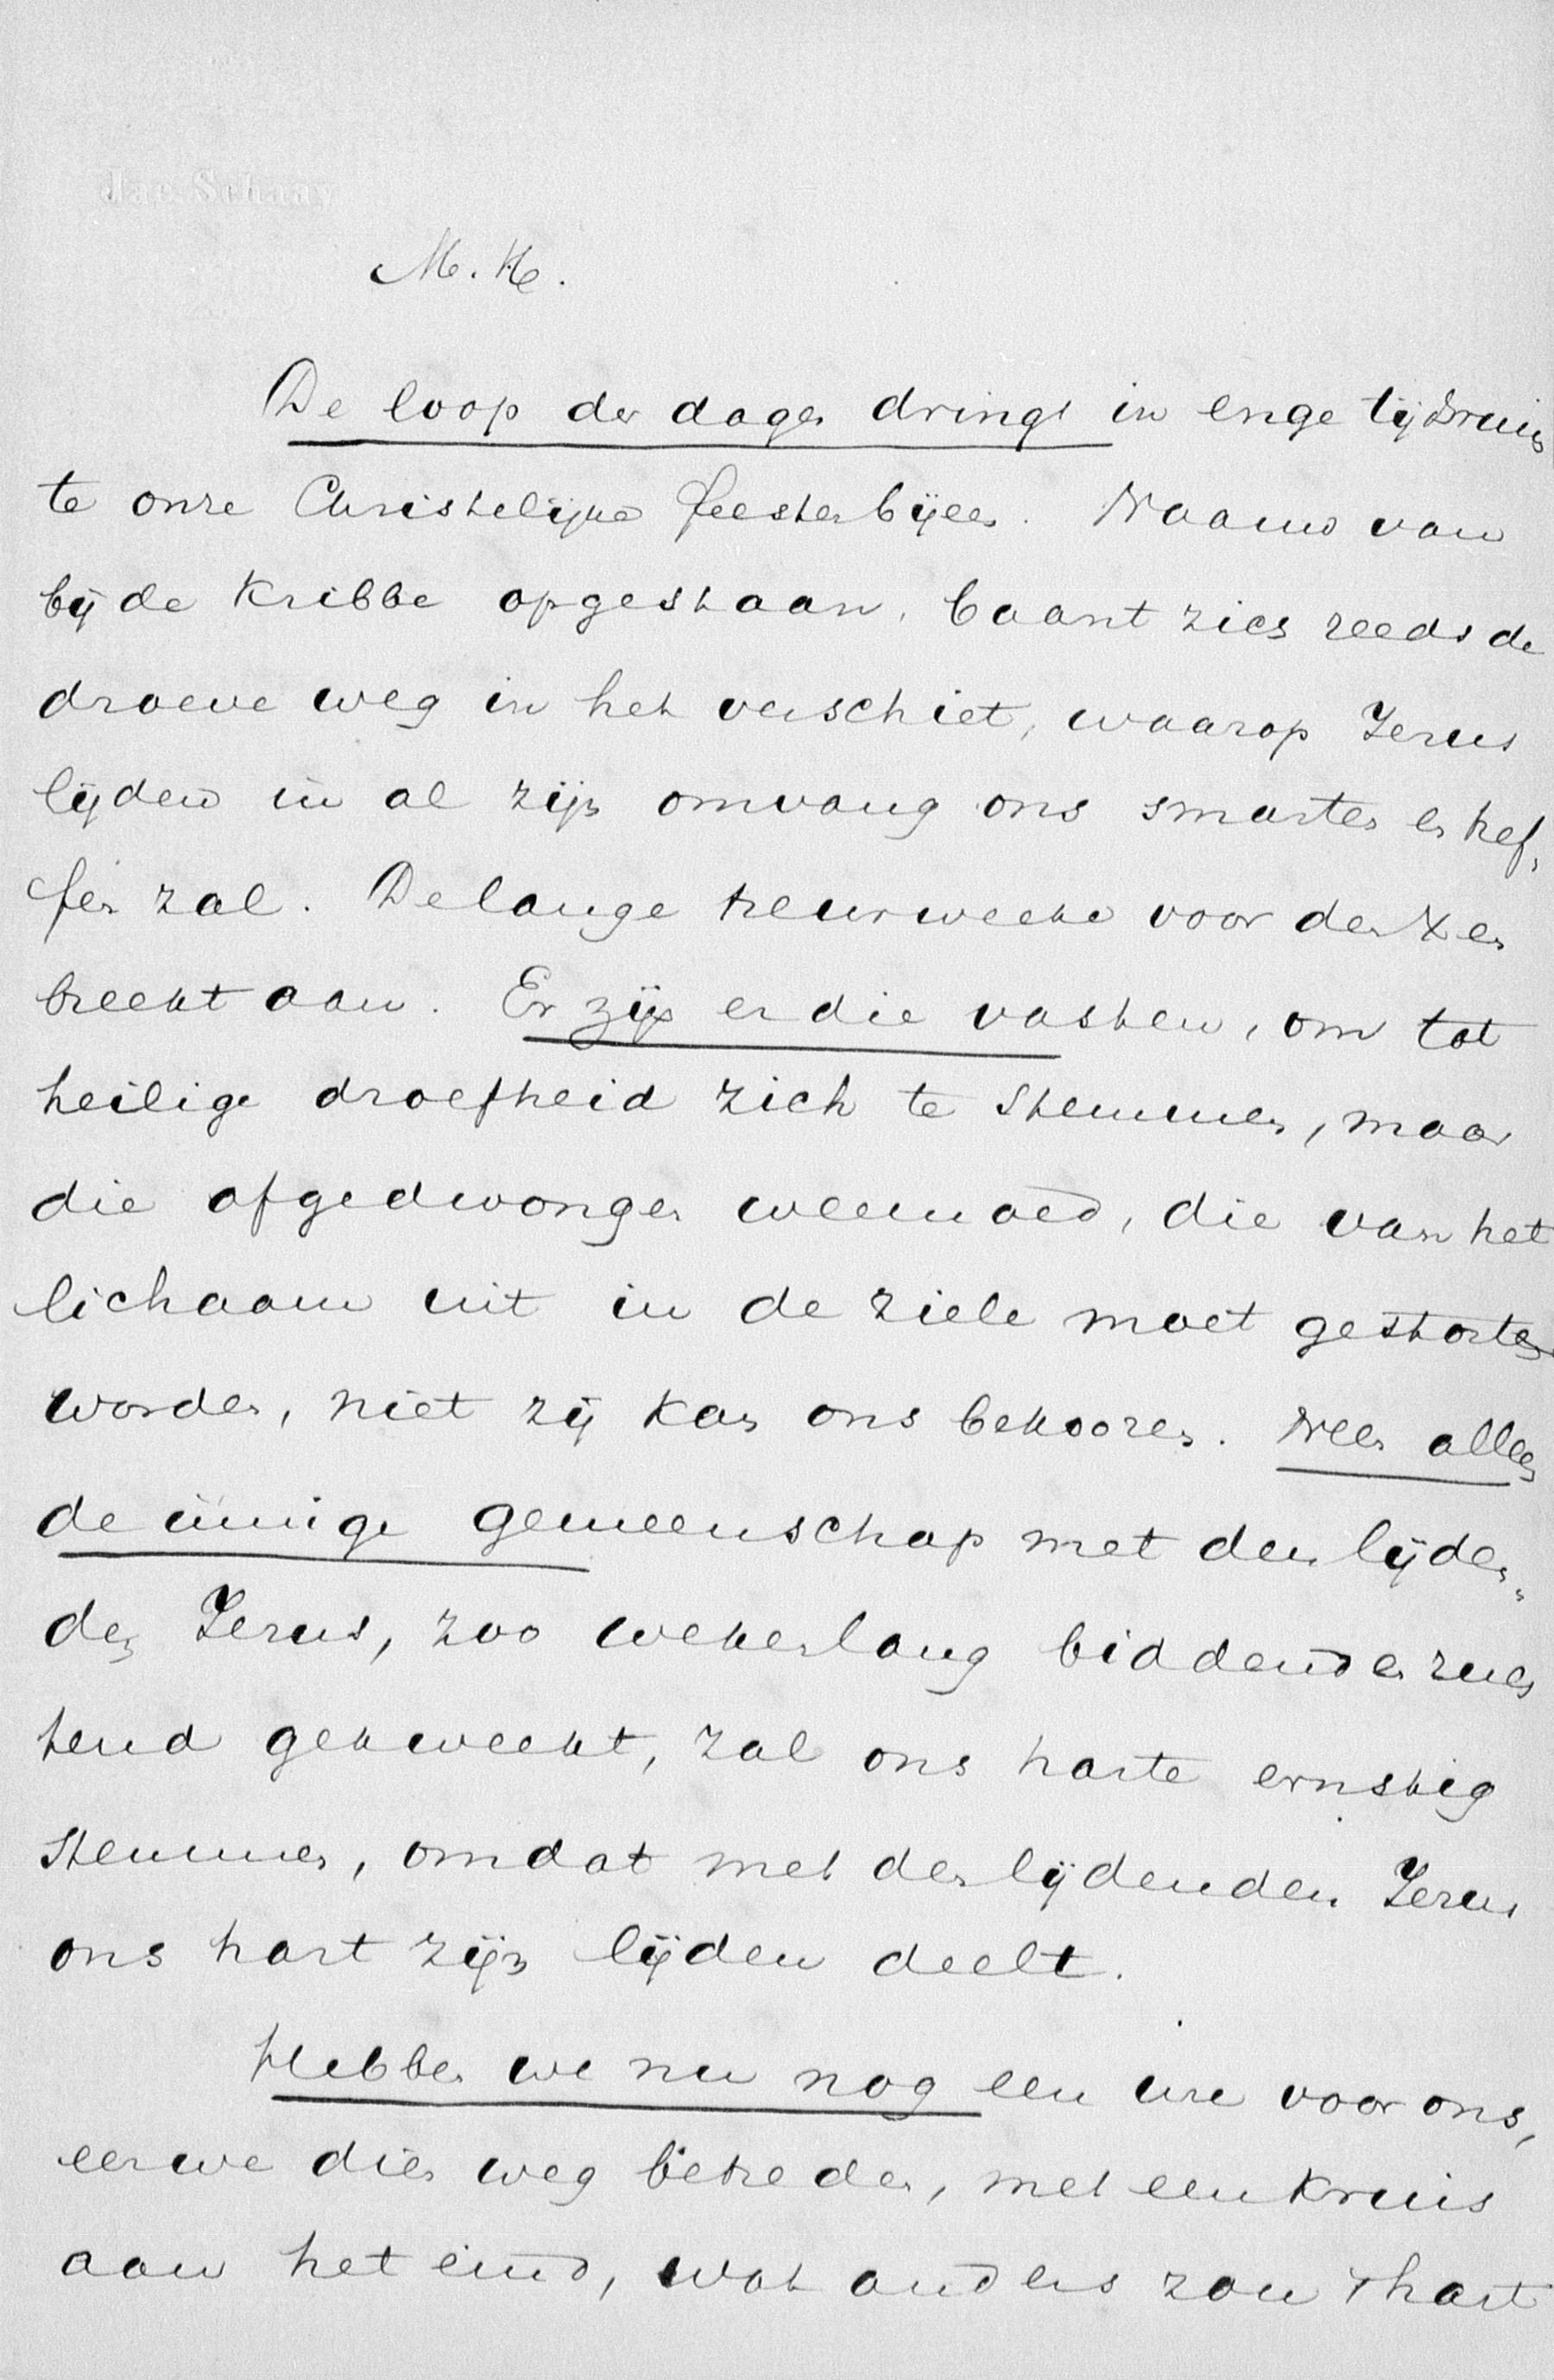 Jac. Schaay
M. H.
De loop der dagen dringt in enge tijdruim
te onze Christelijke feesten bijeen. Naauw van
bij de Kribbe opgestaan, baant zich reeds de
droeve weg in het verschiet, waarop Jezus
lijden in al zijn omvang ons smarten en tref,
fen zal. De lange treurweeke voor de Xen
breekt aan. Er zijn er die vasten, om tot
heilige droefheid zich te stemmen, maar
die afgedwongen weemoed, die van het
lichaam uit in de ziele moet gestorten
worden, niet zij kan ons bekooren. Neen alleen
de innige gemeenschap met den lijden„
den Jezus, zoo wekenlang biddend en zuch
tend gekweekt, zal ons harte ernstig
stemmen, omdat met den lijdenden Jezus
ons hart zijn lijden deelt.
Hebben we nu nog een ure voor ons,
eer we dien weg betreden, met een Kruis
aan het eind, wat anders zou 't hart